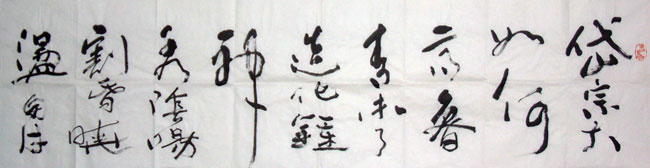 岱宗夫
如何
齊魯
青未了
造化鍾
神
秀陰陽
割昏曉
盪